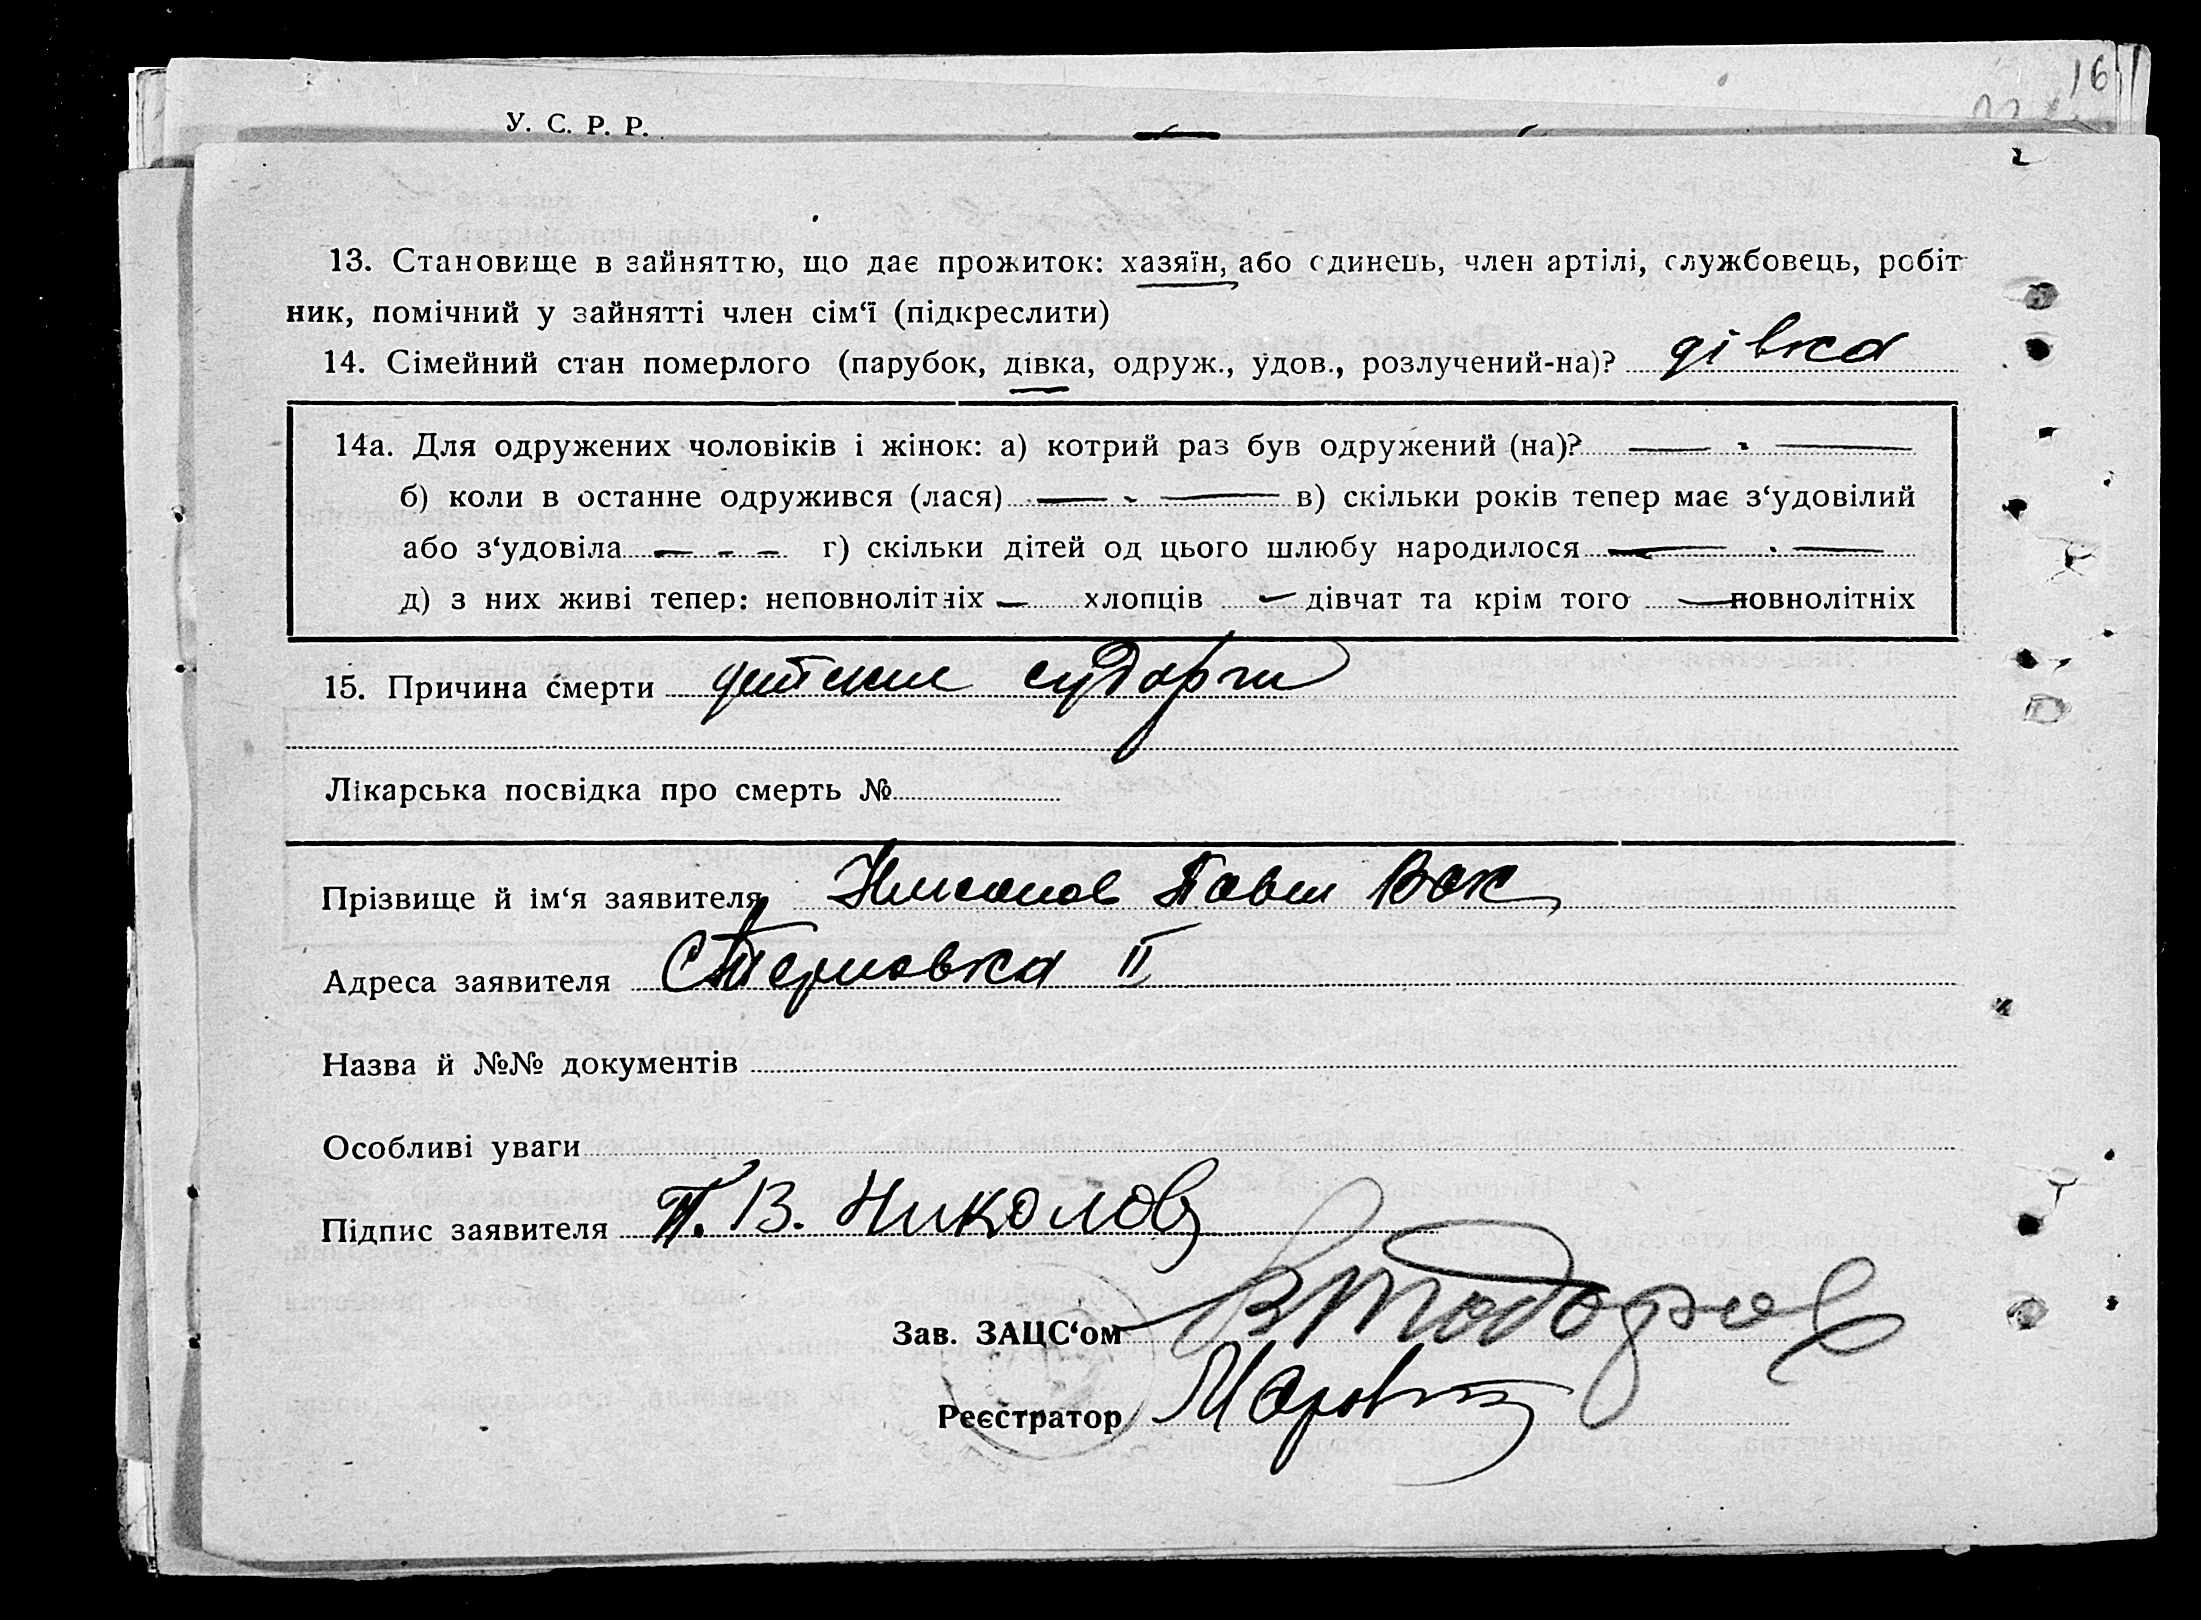 16
У. С. Р. Р.
13. Становище в зайняттю, що дає прожиток: хазяїн, або єдинець, член артілі, службовець, робіт
ник, помічний у зайнятті член сім‘ї (підкреслити)
14. Сімейний стан померлого (парубок, дівка, одруж., удов., розлучений-на)? дівка
14а. Для одружених чоловіків і жінок: а) котрий раз був одружений (на)?
б) коли в останне одружився (лася) в) скільки років тепер має з‘удовілий
або з‘удовіла г) скільки дітей од цього шлюбу народилося
д) з них живі тепер: неповнолітніх — хлопців — дівчат та крім того — повнолітніх
15. Причина смерти детские судорги
Лікарська посвідка про смерть №
Прізвище й ім‘я заявителя Николов Павел
Адреса заявителя С Терновка II
Назва й №№ документів
Особливі уваги
Підпис заявителя П. В. Николов
Зав. ЗАЦС‘ом
Реєстратор